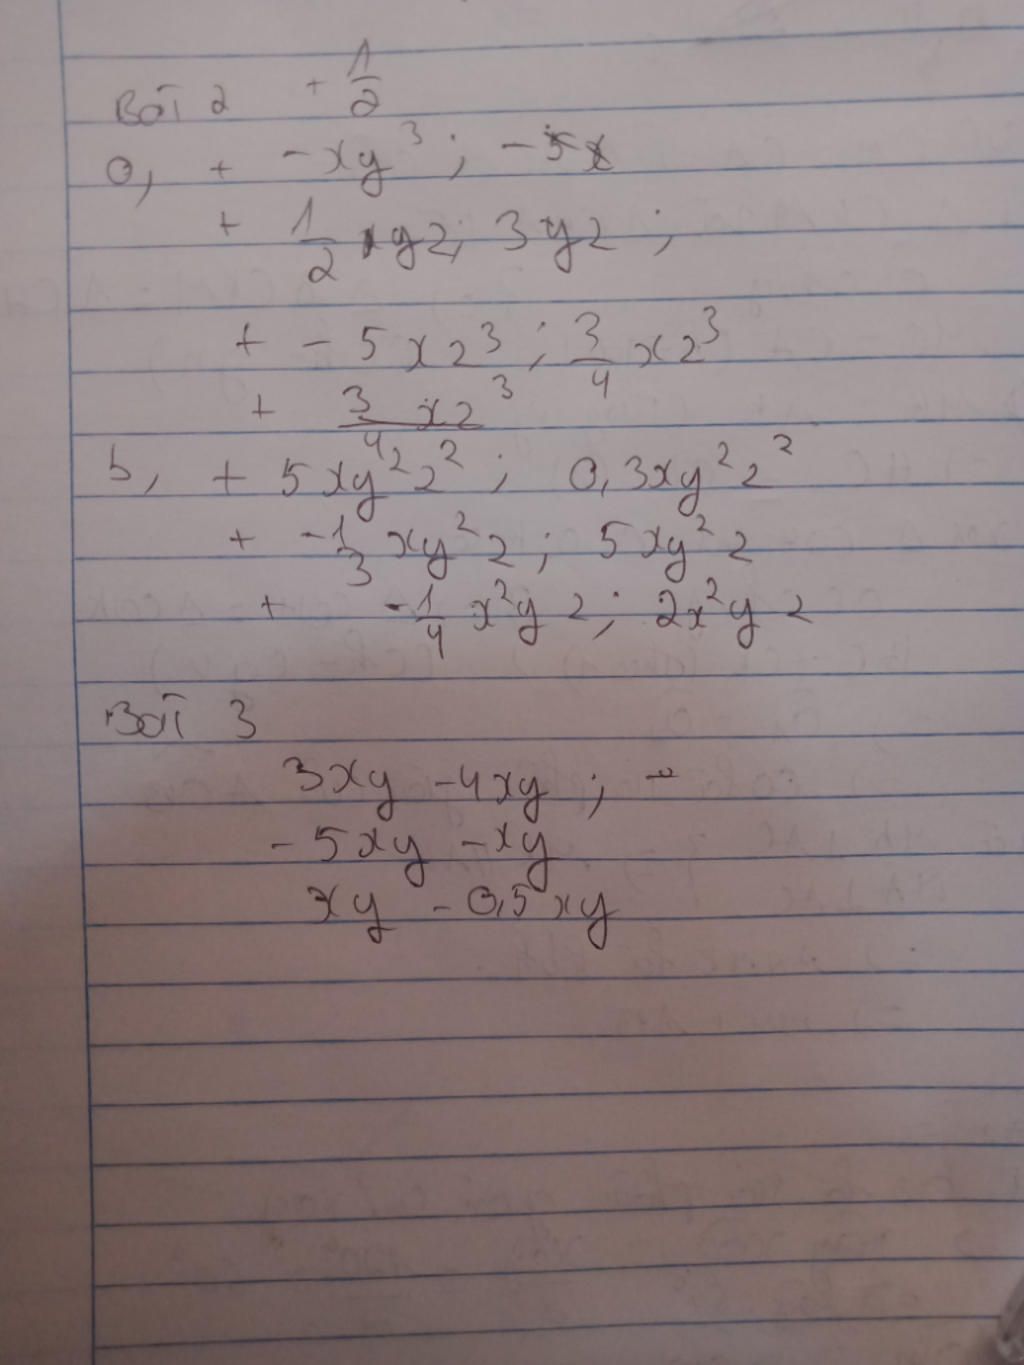 Bài 2 + 1/2
a, + -xy³ ; -5x
+ 1/2 xyz; 3yz ;
+ -5xz³ ; 3/4 xz³
+ 3/4 xz³
b, + 5xy²z² ; 0,3xy²z²
+ -1/3 xy²z ; 5xy²z
+ -1/4 x²yz ; 2x²yz
Bài 3
3xy -4xy ; -
-5xy -xy
xy -0,5xy